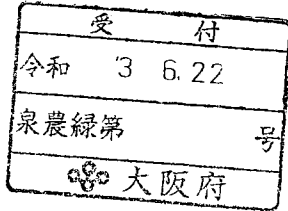 受付
令和 3 6.22
泉農緑第 号
大阪府